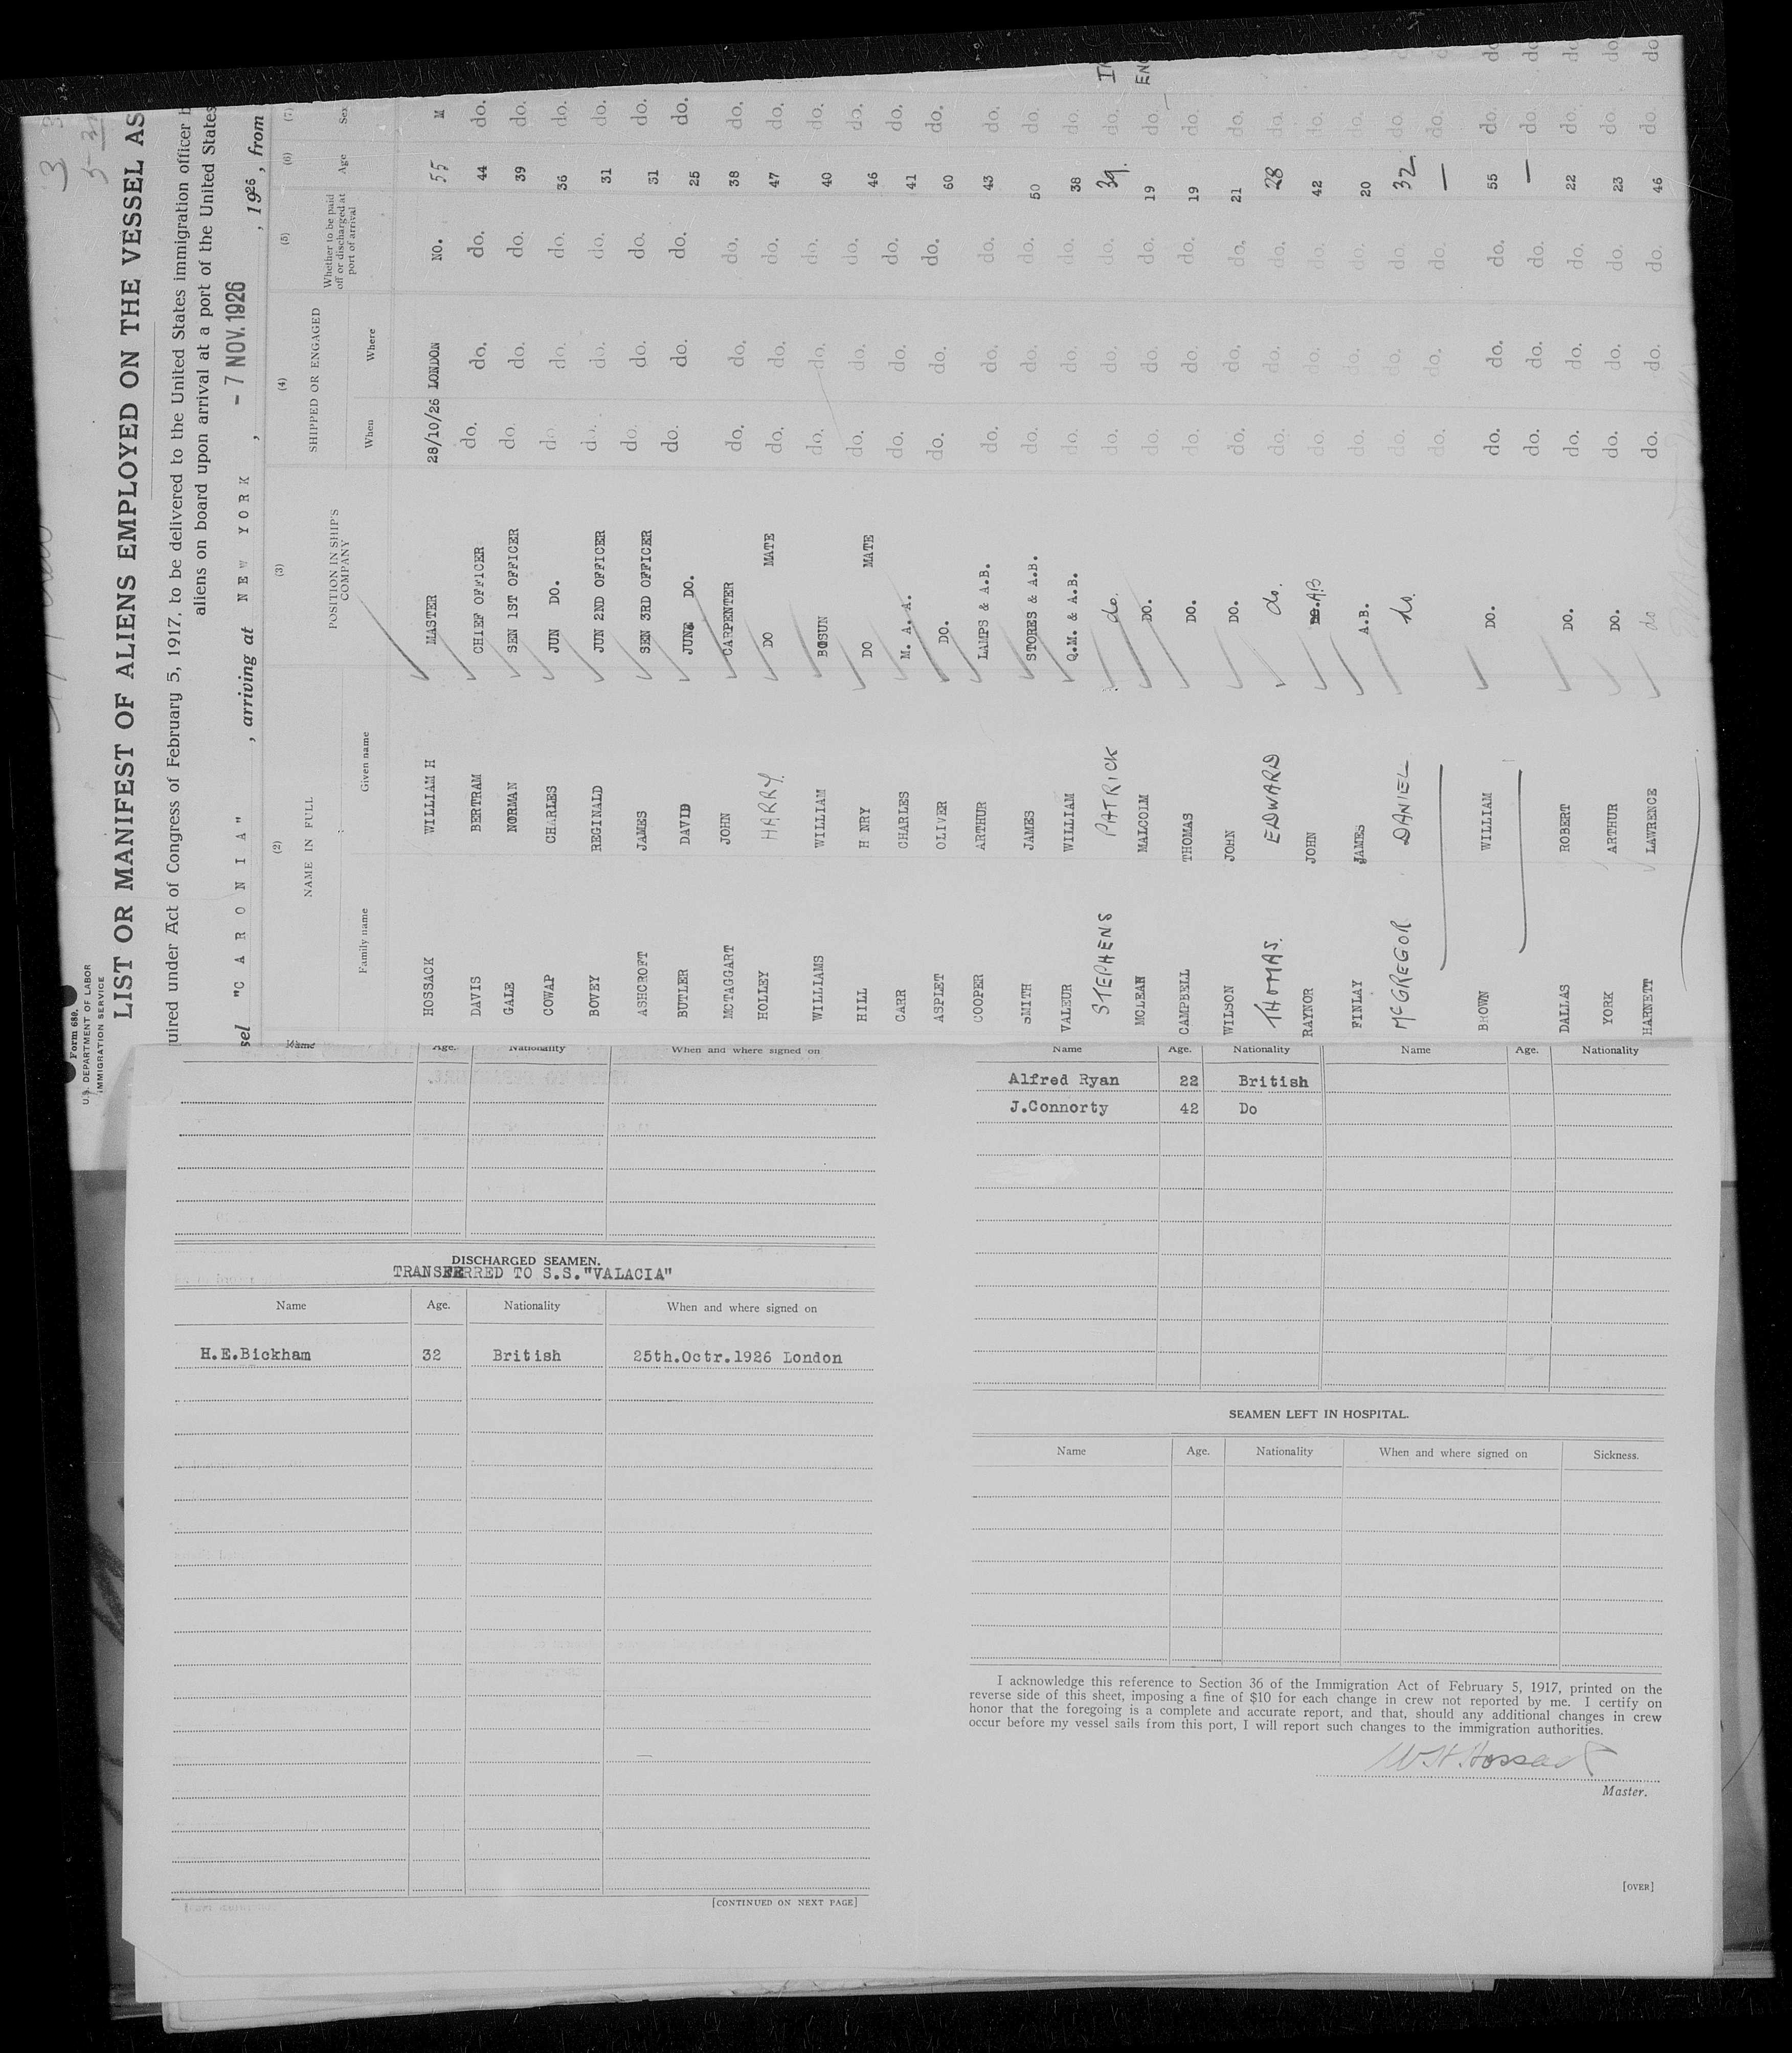 Form 680.
U.S. DEPARTMENT OF LABOR
IMMIGRATION SERVICE
3
LIST OR MANIFEST OF ALIENS EMPLOYED ON THE VESSEL AS
uired under Act of Congress of February 5, 1917, to be delivered to the United States immigration officer b
aliens on board upon arrival at a port of the United States
sel "C A R O N I A" , arriving at N E W Y O R K , - 7 NOV. 1926 , 1926 , from
(2) (3) (4) (5) (6) (7)
NAME IN FULL POSITION IN SHIP'S COMPANY SHIPPED OR ENGAGED Whether to be paid off or discharged at port of arrival Age Sex
Family name Given name When Where
HOSSACK WILLIAM H MASTER 28/10/26 LONDON NO. 55 M
DAVIS BERTRAM CHIEF OFFICER do. do. do. 44 do.
GALE NORMAN SEN 1ST OFFICER do. do. do. 39 do.
COWAP CHARLES JUN DO. do. do. do. 36 do.
BOVEY REGINALD JUN 2ND OFFICER do. do. do. 31 do.
ASHCROFT JAMES SEN 3RD OFFICER do. do. do. 31 do.
BUTLER DAVID JUNE DO. do. do. do. 25 do.
MCTAGGART JOHN CARPENTER do. do. do. 38 do.
HOLLEY HARRY. DO MATE do. do. do. 47 do.
WILLIAMS WILLIAM BOSUN do. do. do. 40 do.
HILL H NRY DO MATE do. do. do. 46 do.
CARR CHARLES M. A. A. do. do. do. 41 do.
ASPLET OLIVER DO. do. do. do. 60 do.
COOPER ARTHUR LAMPS & A.B. do. do. do. 43 do.
SMITH JAMES STORES & A.B. do. do. do. 50 do.
VALEUR WILLIAM Q.M. & A.B. do. do. do. 38 do.
STEPHENS PATRICK do. do. do. do. 39. do.
MCLEAN MALCOLM DO. do. do. do. 19 do.
CAMPBELL THOMAS DO. do. do. do. 19 do.
WILSON JOHN DO. do. do. do. 21 do.
THOMAS. EDWARD do. do. do. do. 28 do.
RAYNOR JOHN AB do. do. do. 42 do.
FINLAY JAMES A.B. do. do. do. 20 do.
McGREGOR DANIEL do. do. do. do. 32 do.
do. do. do. — do.
BROWN WILLIAM DO. do. do. do. 55 do. do
do. do. do. — do. do
DALLAS ROBERT DO. do. do. do. 22 do. do
YORK ARTHUR DO. do. do. do. 23 do. do
HARNETT LAWRENCE do do. do. do. 46 do. do
Name Age. Nationality When and where signed on
DISCHARGED SEAMEN.
TRANSFERRED TO S.S."VALACIA"
Name Age. Nationality When and where signed on
H.E.Bickham 32 British 25th.Octr.1926 London
[CONTINUED ON NEXT PAGE]
Name Age. Nationality Name Age. Nationality
Alfred Ryan 22 British
J.Connorty 42 Do
SEAMEN LEFT IN HOSPITAL.
Name Age. Nationality When and where signed on Sickness.
I acknowledge this reference to Section 36 of the Immigration Act of February 5, 1917, printed on the
reverse side of this sheet, imposing a fine of $10 for each change in crew not reported by me. I certify on
honor that the foregoing is a complete and accurate report, and that, should any additional changes in crew
occur before my vessel sails from this port, I will report such changes to the immigration authorities.
W.H.Hossack
Master.
[OVER]